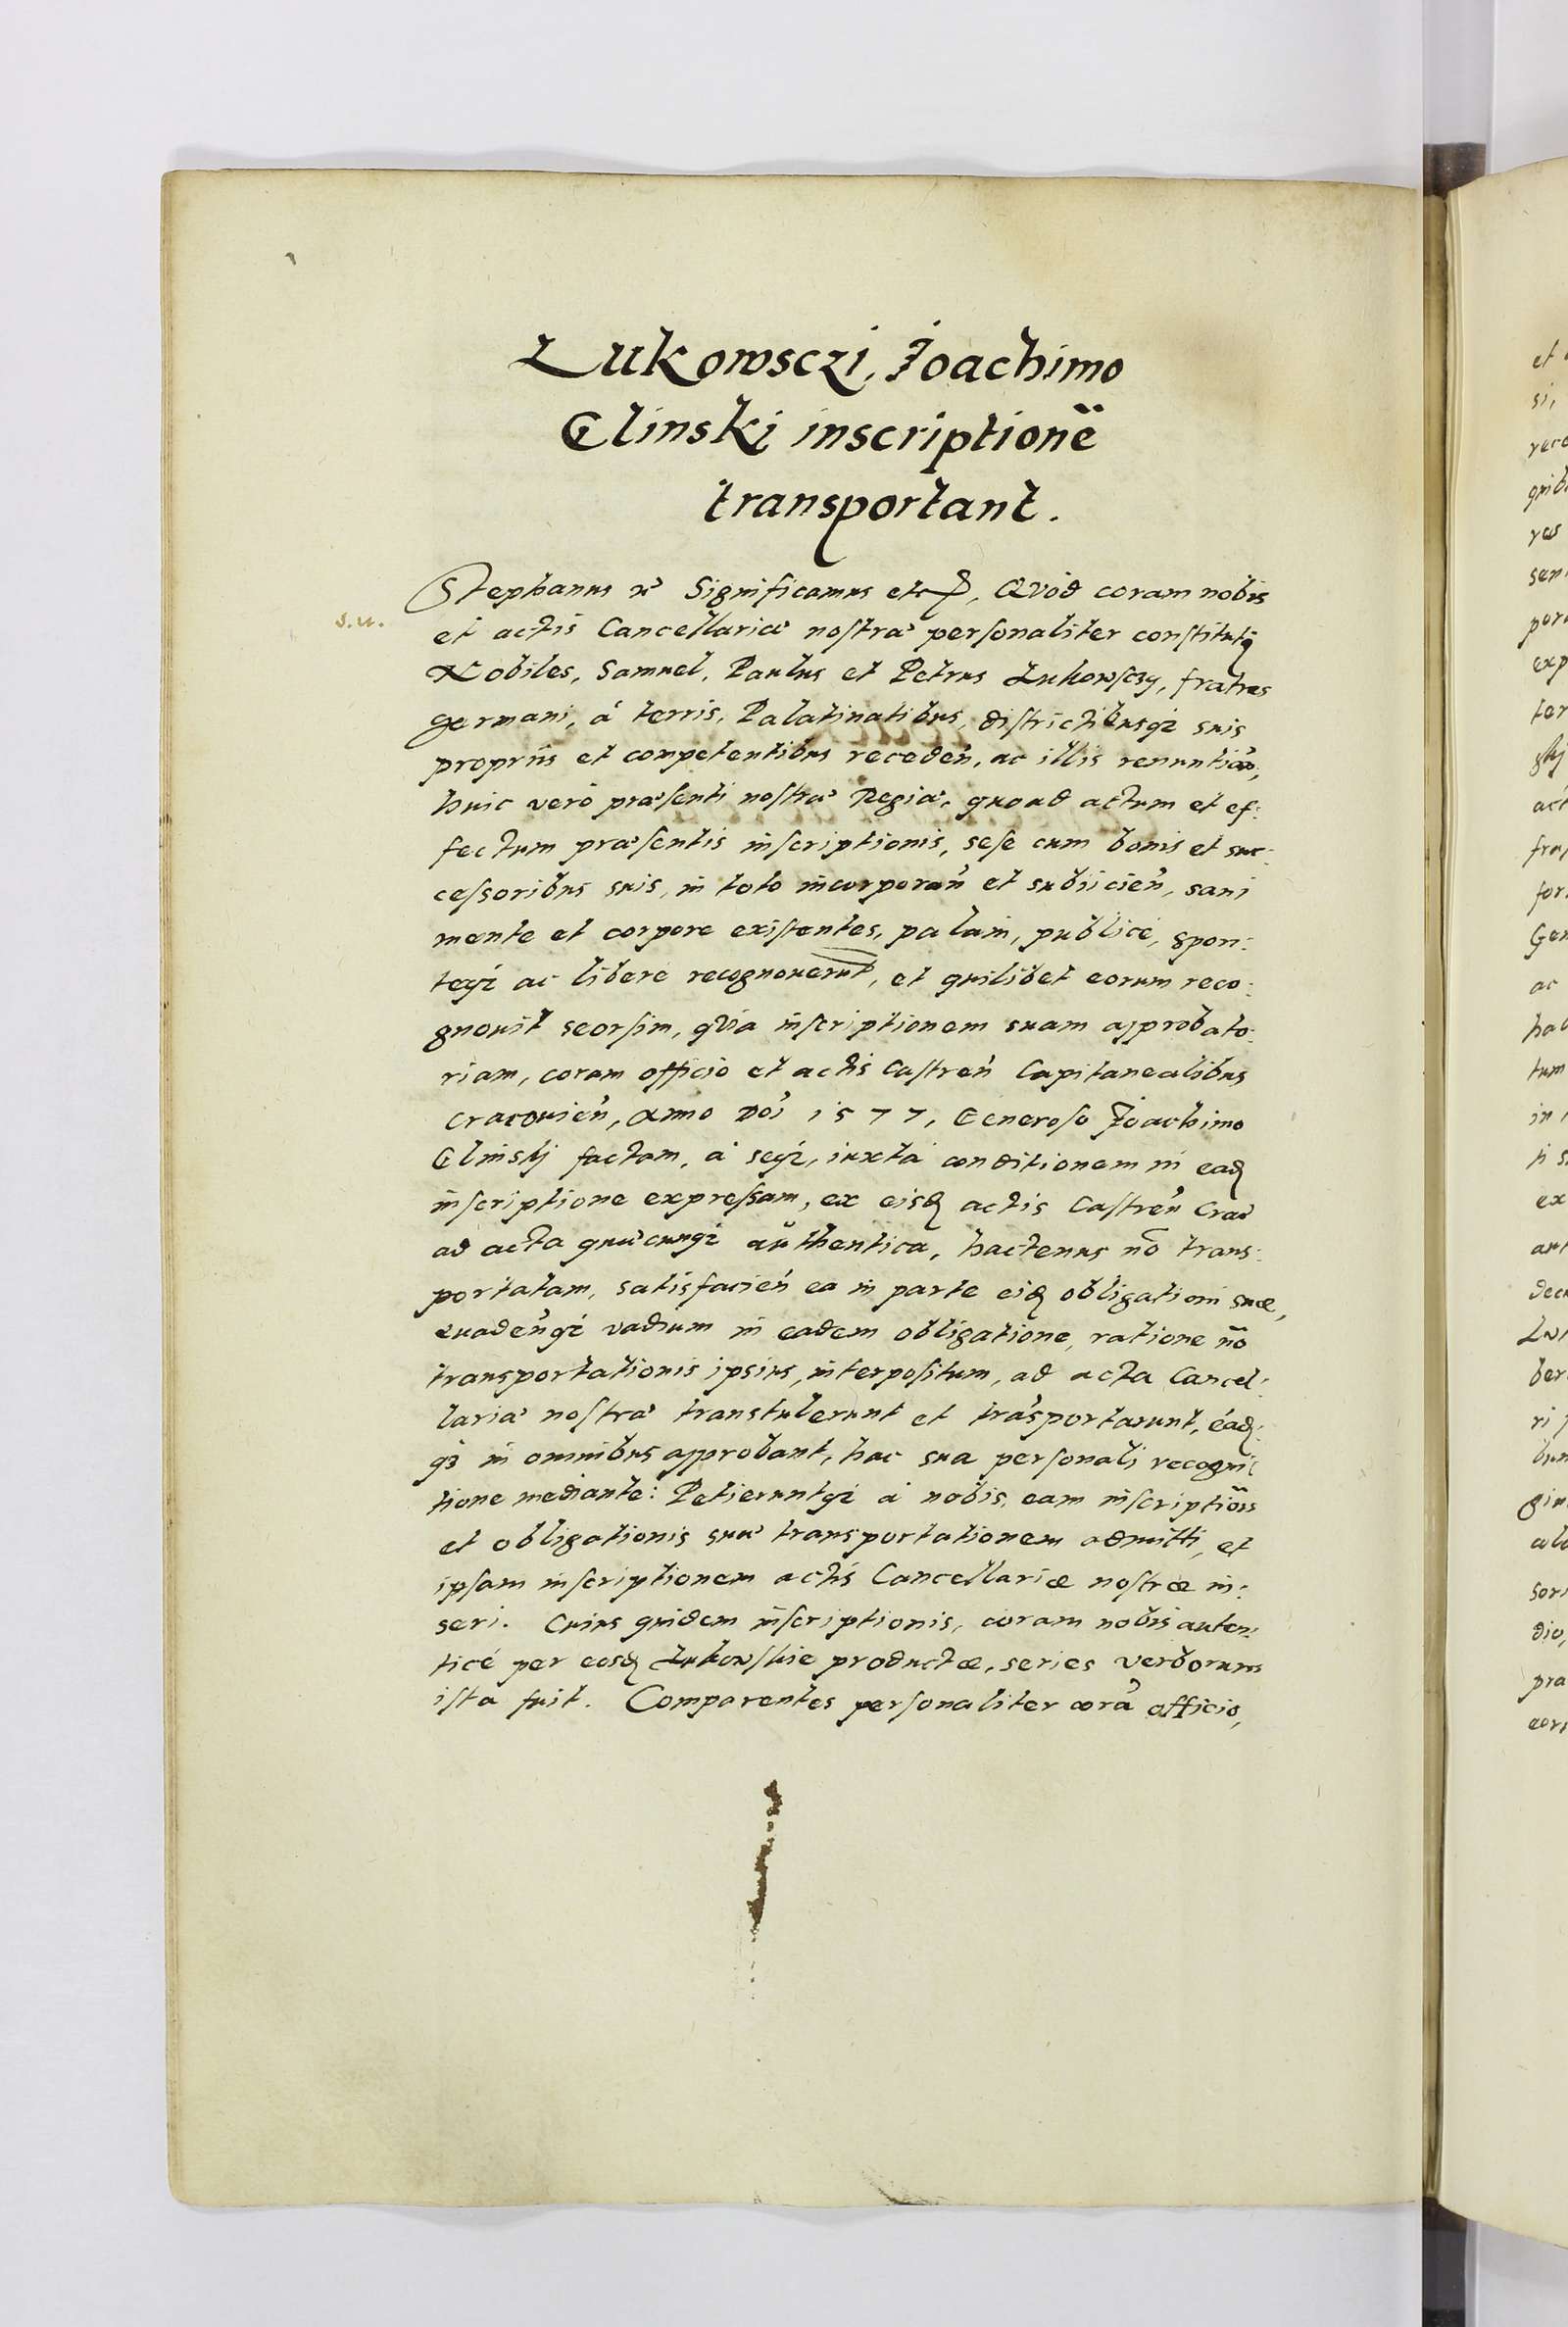 Lukowsczi, Joachimo
Glinski inscriptionē
transportant.
Stephanus etc Significamus etc, Quod coram nobis
s.u.
et actis Cancellariæ nostræ personaliter constituti
Nobiles, Samuel, Paulus et Petrus Lukowsczy, fratres
germani, á terris, Palatinatibus, districtibusq; suis
proprijs et competentibus receden̄, ac illis renuntian̄,
huic veró præsenti nostræ Regiæ, quoad actum et ef:
fectum præsentis inscriptionis, sese cum bonis et suc:
cessoribus suis, in toto incorporan̄ et subijcien̄, sani
mente et corpore existentes, palam, publicé, spon:
teq; ac libere recognouerunt, et quilibet eorum reco:
gnouit seorsim, quia inscriptionem suam approbato:
riam, coram officio et actis Castren̄ Capitanealibus
Cracouien̄, Anno Dn̄i 1577, Generoso Joachimo
Glinskj factam, á seq;, iuxta conditionem in eadē
inscriptione expressam, ex eisdē actis Castren̄ Crac̄
ad acta quæcunq; authentica, hactenus nō trans:
portatam, satisfacien̄ ea in parte eidē obligationi suæ,
euaden̄q; vadium in eadem obligatione, ratione nō
transportationis ipsius, interpositum, ad acta Cancel:
lariæ nostræ transtulerunt et trāsportarunt, eādē:
q; in omnibus approbant, hac sua personali recogni:
tione mediante: Petieruntq; á nobis, eam inscriptiōis
et obligationis suæ transportationem admitti, et
ipsam inscriptionem actis Cancellariæ nostræ in:
seri. Cuius quidem inscriptionis, coram nobis auten:
ticé per eosdē Lukowskie productæ, series verborum
ista fuit. Comparentes personaliter corā officio,